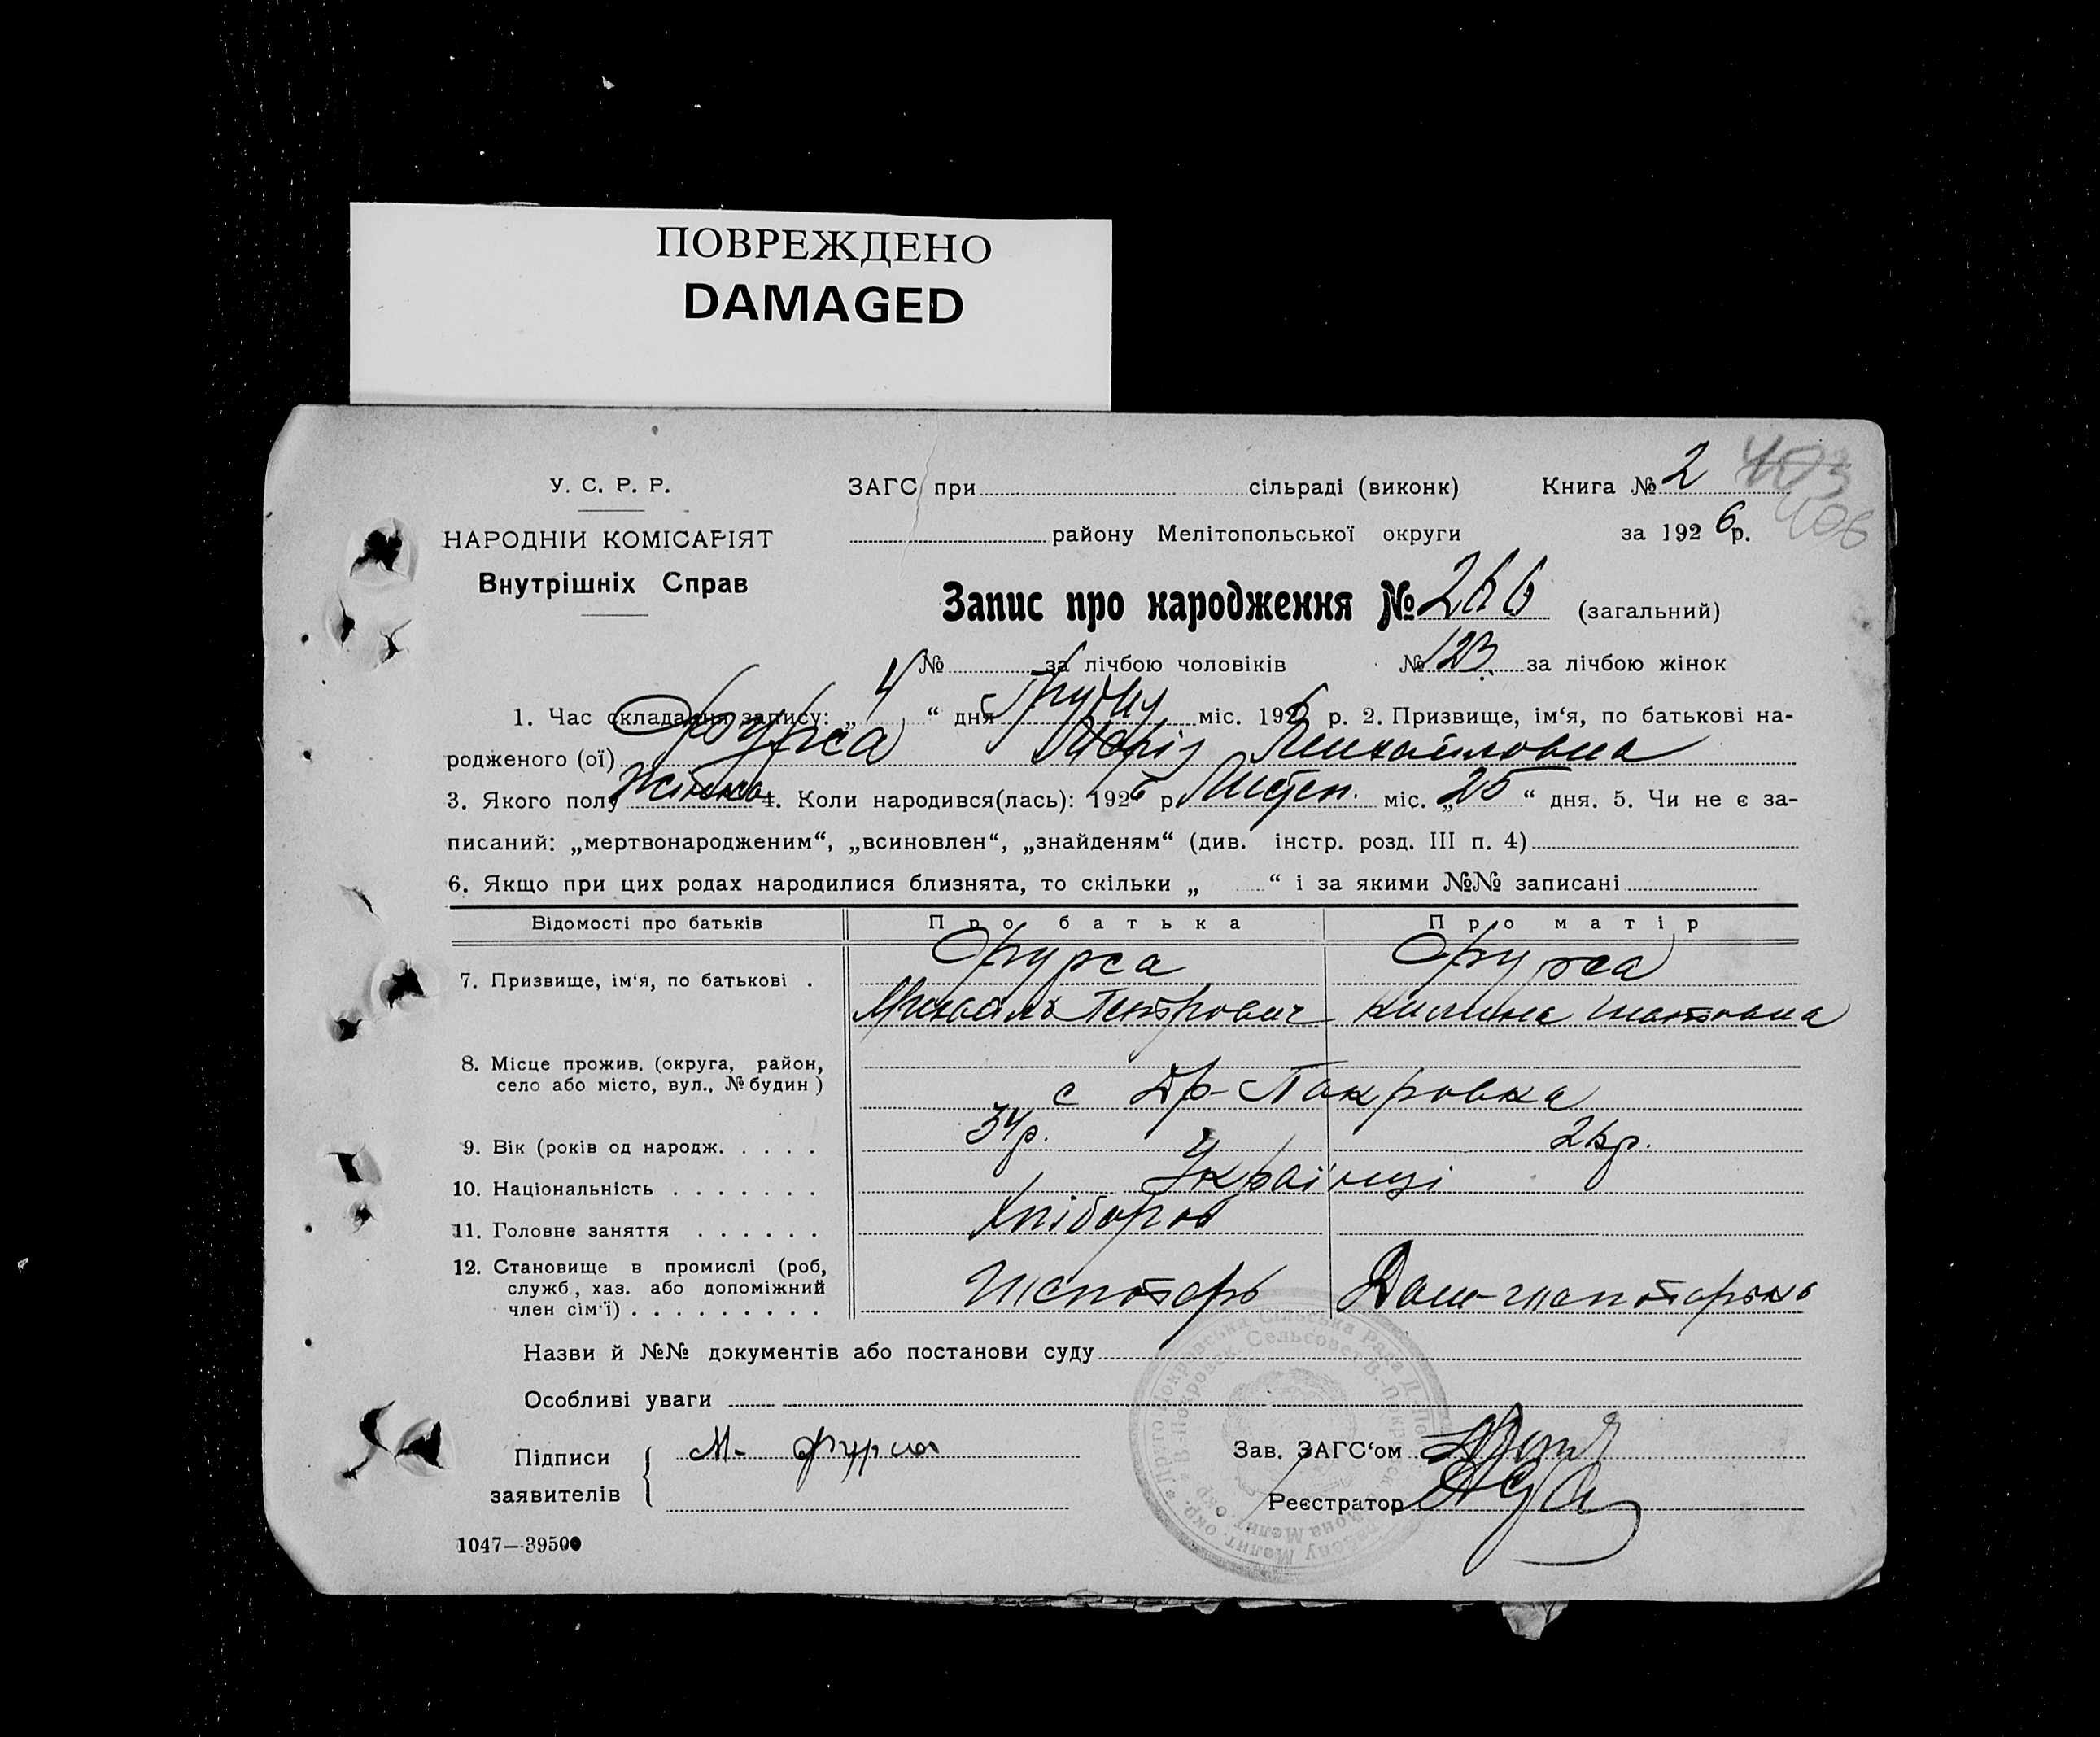 ПОВРЕЖДЕНО
DAMAGED
У. С. Р. Р.
НАРОДНІИ КОМІСАРІЯТ
Внутрішніх Справ
ЗАГС при сільраді (виконк)
району Мелітопольської округи
Книга № 2
403
406
за 1926 р.
Запис про народження № 266 (загальний)
№ за лічбою чоловіків № 123 за лічбою жінок
1. Час складання запису: „ 4 “ дня Грудня міс. 1926 р. 2. Призвище, ім‘я, по батькові на-
родженого (ої) Фурса Марія Михайловна
3. Якого полу Жіноча 4. Коли народився(лась): 1926 р. Листоп. міс. „ 25 “ дня. 5. Чи не є за-
писаний: „мертвонародженим“, „всиновлен“, „знайденям“ (див. інстр. розд. III п. 4)
6. Якщо при цих родах народилися близнята, то скільки „ “ і за якими №№ записані
Відомості про батьків Про батька Про матір
7. Призвище, ім‘я, по батькові . Фурса Фурса
Михаиль Петрович Килина
8. Місце прожив. (округа, район,
село або місто, вул., № будин ) с Др-Покровка
9. Вік (років од народж. . . . . 34р. 26р.
10. Національність . . . . . . . Українці
11. Головне заняття . . . . . . Хлібороб
12. Становище в промислі (роб,
служб, хаз. або допоміжний
член сім‘ї) . . . . . . . . .
Назви й №№ документів або постанови суду
Особливі уваги
Підписи
заявителів
М. Фурса
Зав. ЗАГС‘ом
Реєстратор
1047—39500